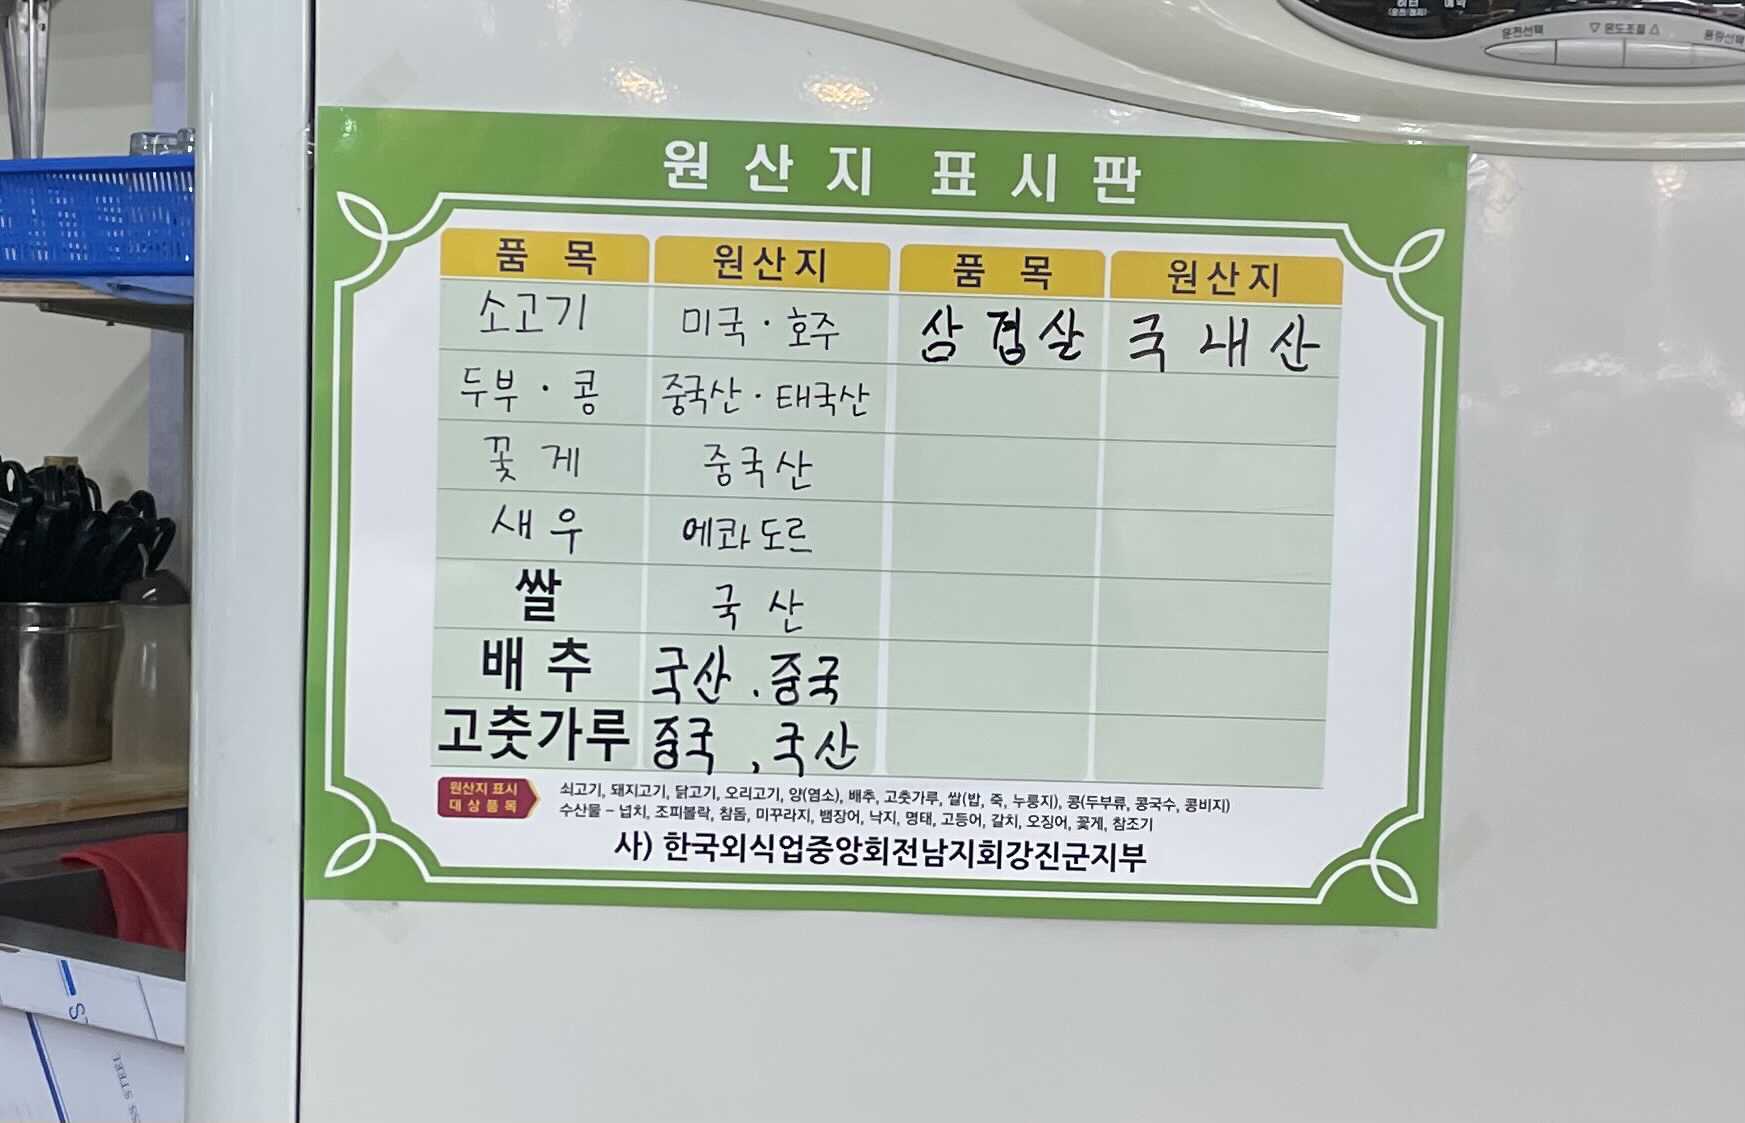 히터 예약
(운전/정지)
운전선택 ▽ 온도조절 △ 풍량선택
원산지 표시판
품목 원산지 품목 원산지
소고기 미국·호주 삼겹살 국내산
두부·콩 중국산·태국산
꽃게 중국산
새우 에콰도르
쌀 국산
배추 국산.중국
고춧가루 중국,국산
원산지 표시
대상품목
쇠고기, 돼지고기, 닭고기, 오리고기, 양(염소), 배추, 고춧가루, 쌀(밥, 죽, 누룽지), 콩(두부류, 콩국수, 콩비지)
수산물 – 넙치, 조피볼락, 참돔, 미꾸라지, 뱀장어, 낙지, 명태, 고등어, 갈치, 오징어, 꽃게, 참조기
사) 한국외식업중앙회전남지회강진군지부
STEEL